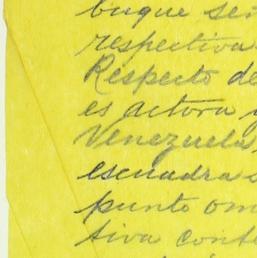 buque se
respectiva
Respecto de
es actora y
Venezuela,
escuadra
punto om
tiva cont